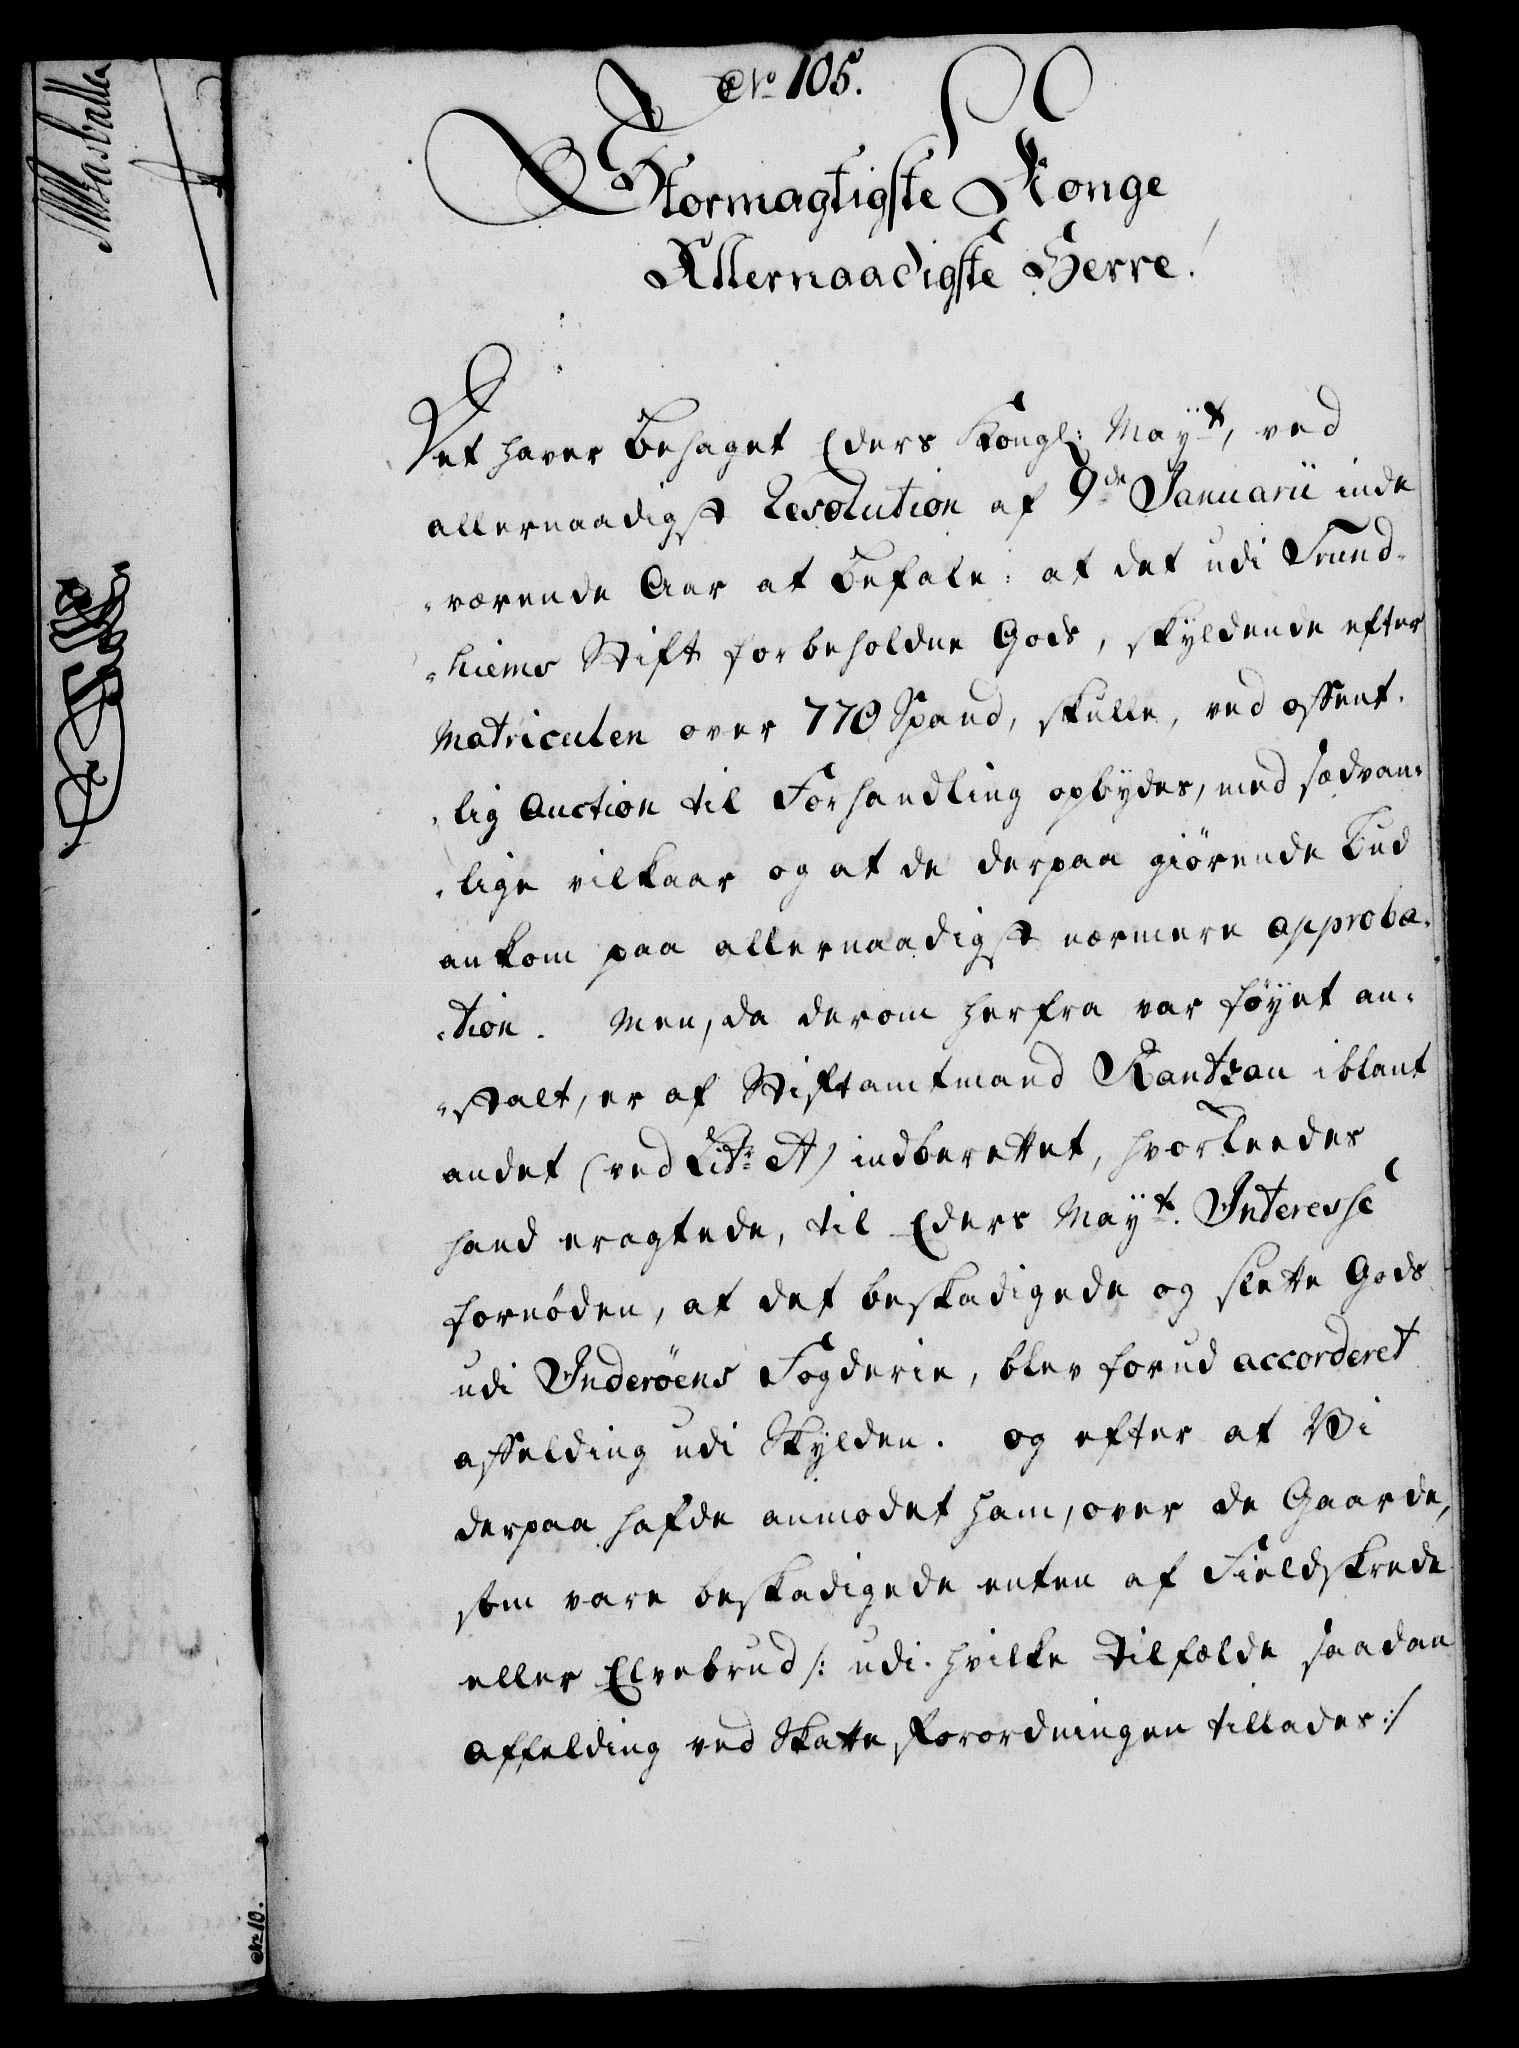 No 105.
Stormagtigste Konge
Allernaadigste Herre!
Det haver behaget Eders Kongl: Mayt, ved
allernaadigst Resolution af 9de Januarii inde
-værende Aar at befale: at det udi Trund-
-hiems Stift forbeholdne Gods, skyldende efter
Matriculen over 770 Spand, skulle, ved offent-
-lig Auction til Forhandling opbydes, med sædvan-
-lige vilkaar og at de derpaa giørende Bud
ankom paa allernaadigst nærmere approba-
-tion. Men, da derom herfra var føyet an-
-stalt, er af Stiftamtmand Rantzau iblant
andet (ved Litr: A) indberettet, hvorleedes
hand eragtede, til Eders Mayt. Interesse
fornøden, at det beskadigede og slette Gods
udi Inderöens Fogderie, blev forud accorderet
affelding udi Skylden. og efter at Vi
derpaa hafde anmodet ham, over de Gaarde,
som vare beskadigede enten af Fieldskrede
eller Elvebrud /: udi hvilke tilfælde saadan
affelding ved Skatte forordningen tillades :/
No 10.